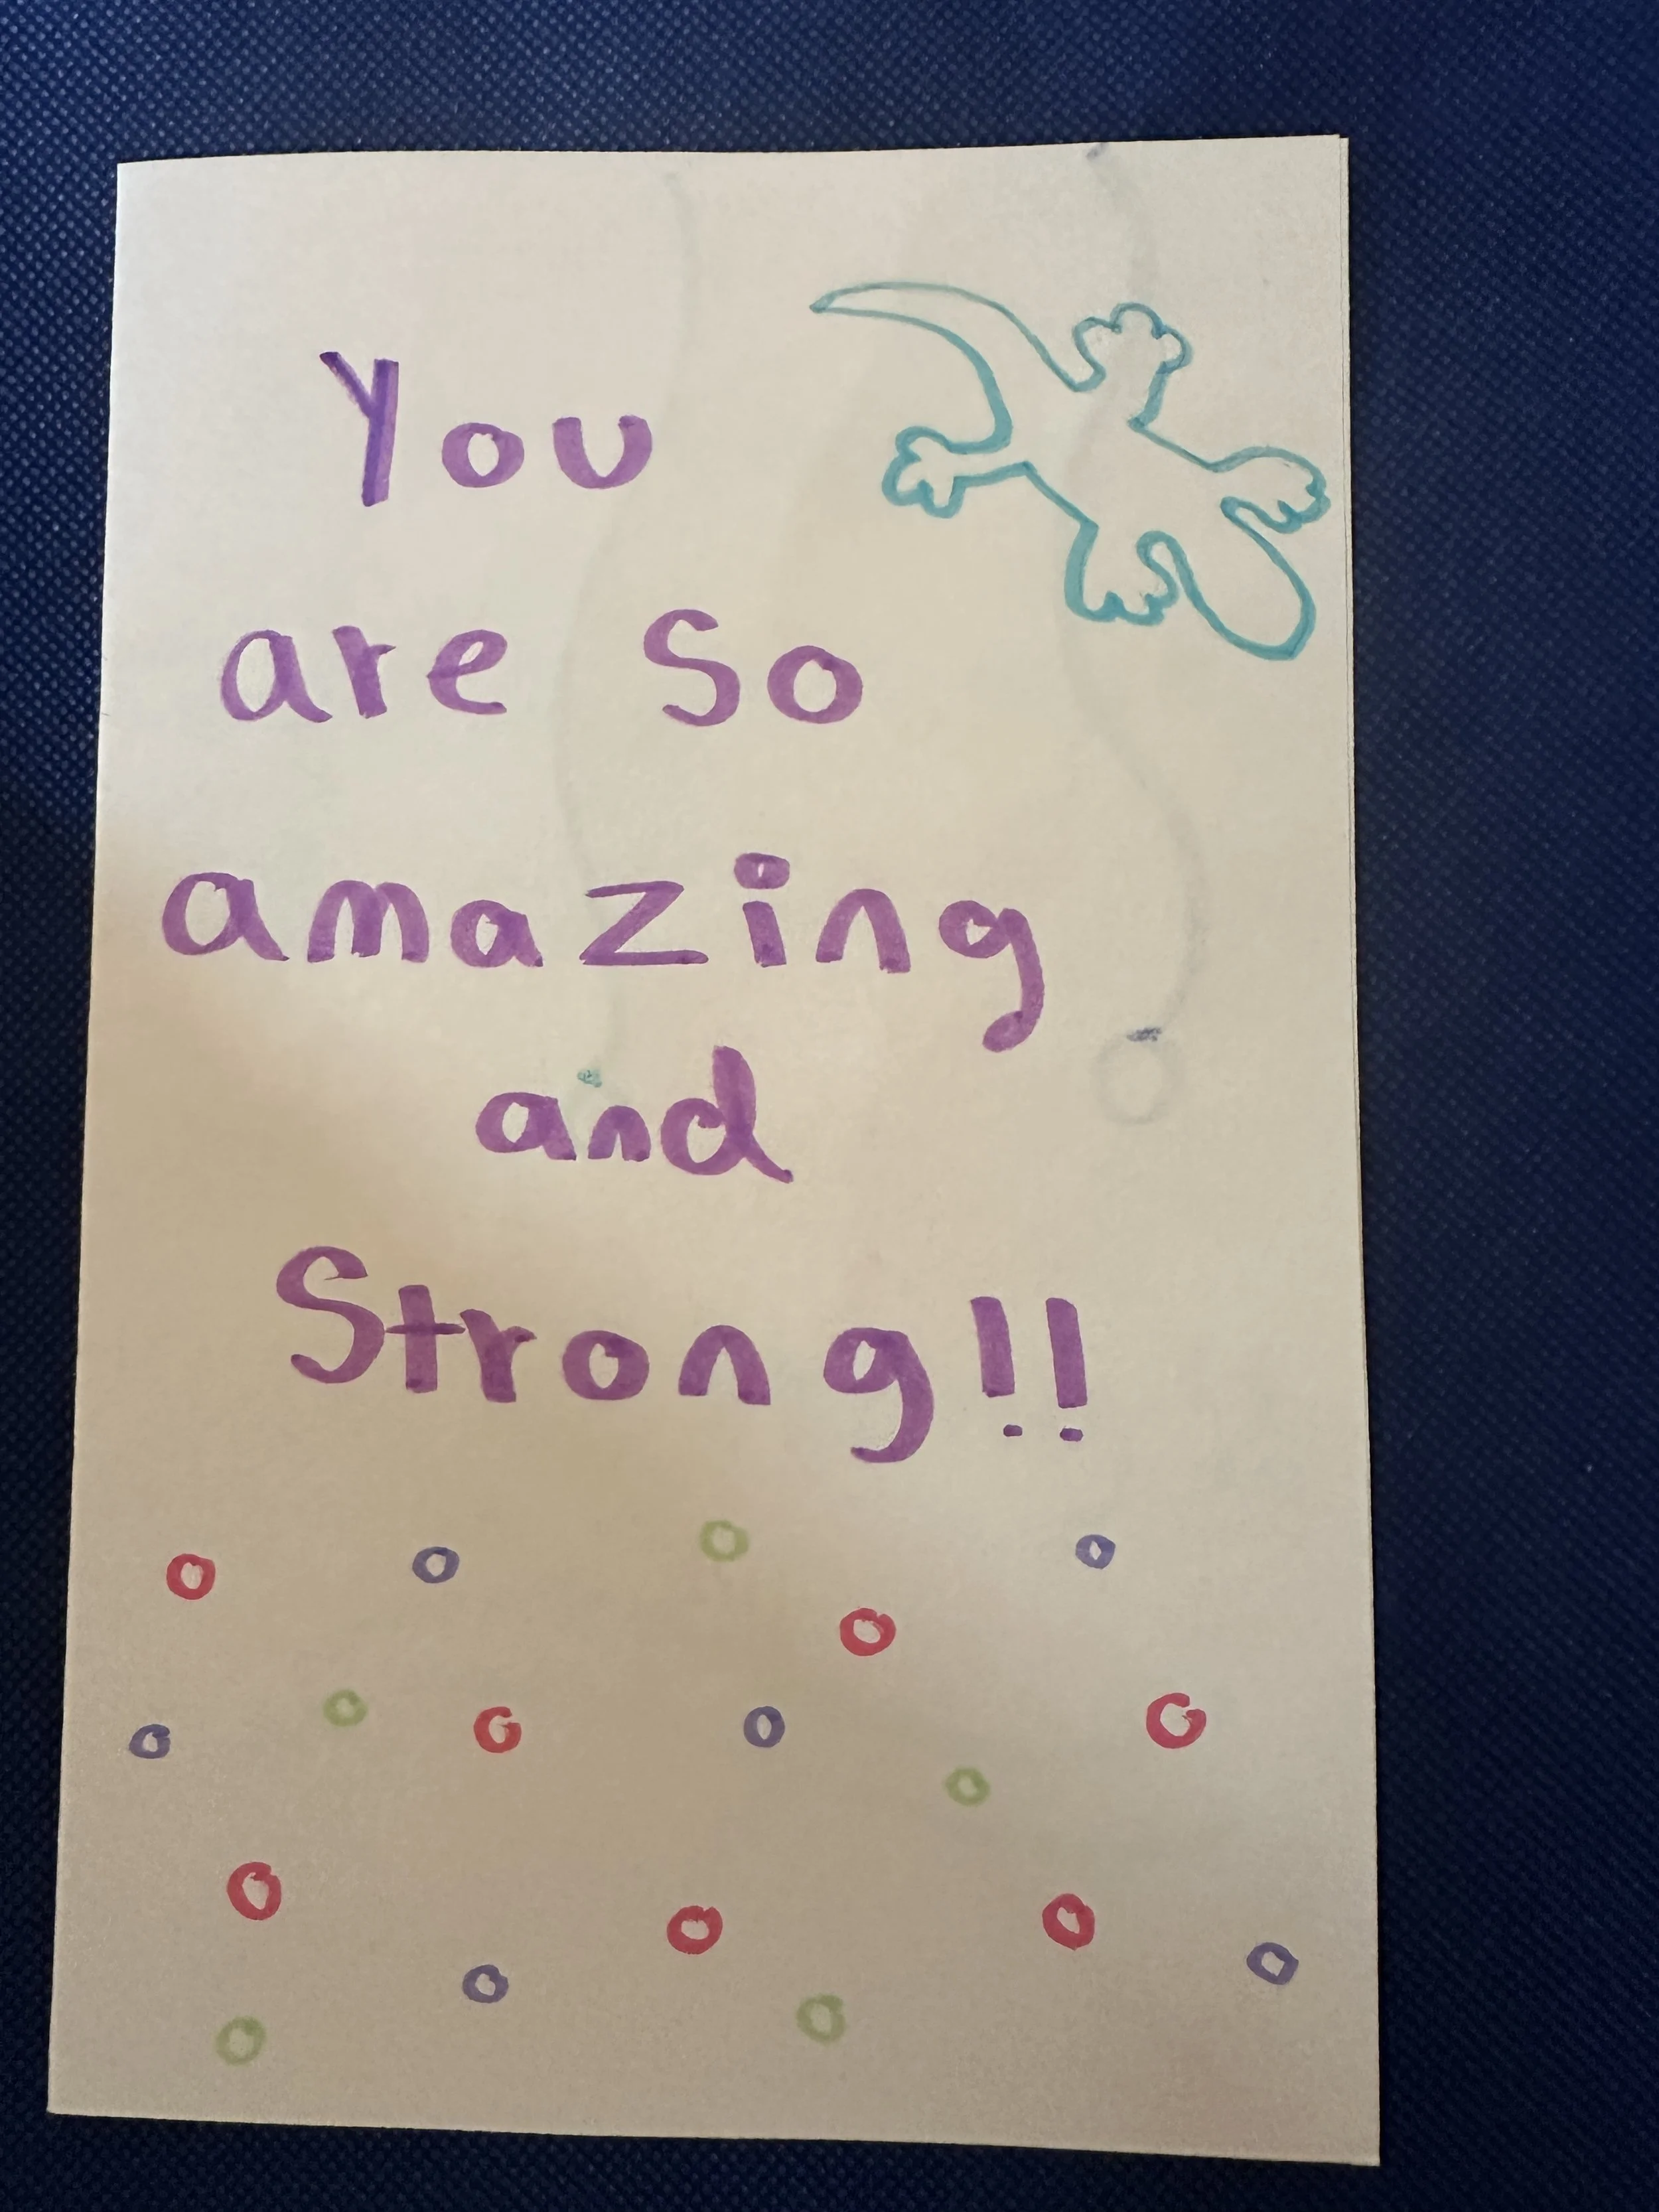 You
are So
amazing
and
Strong!!